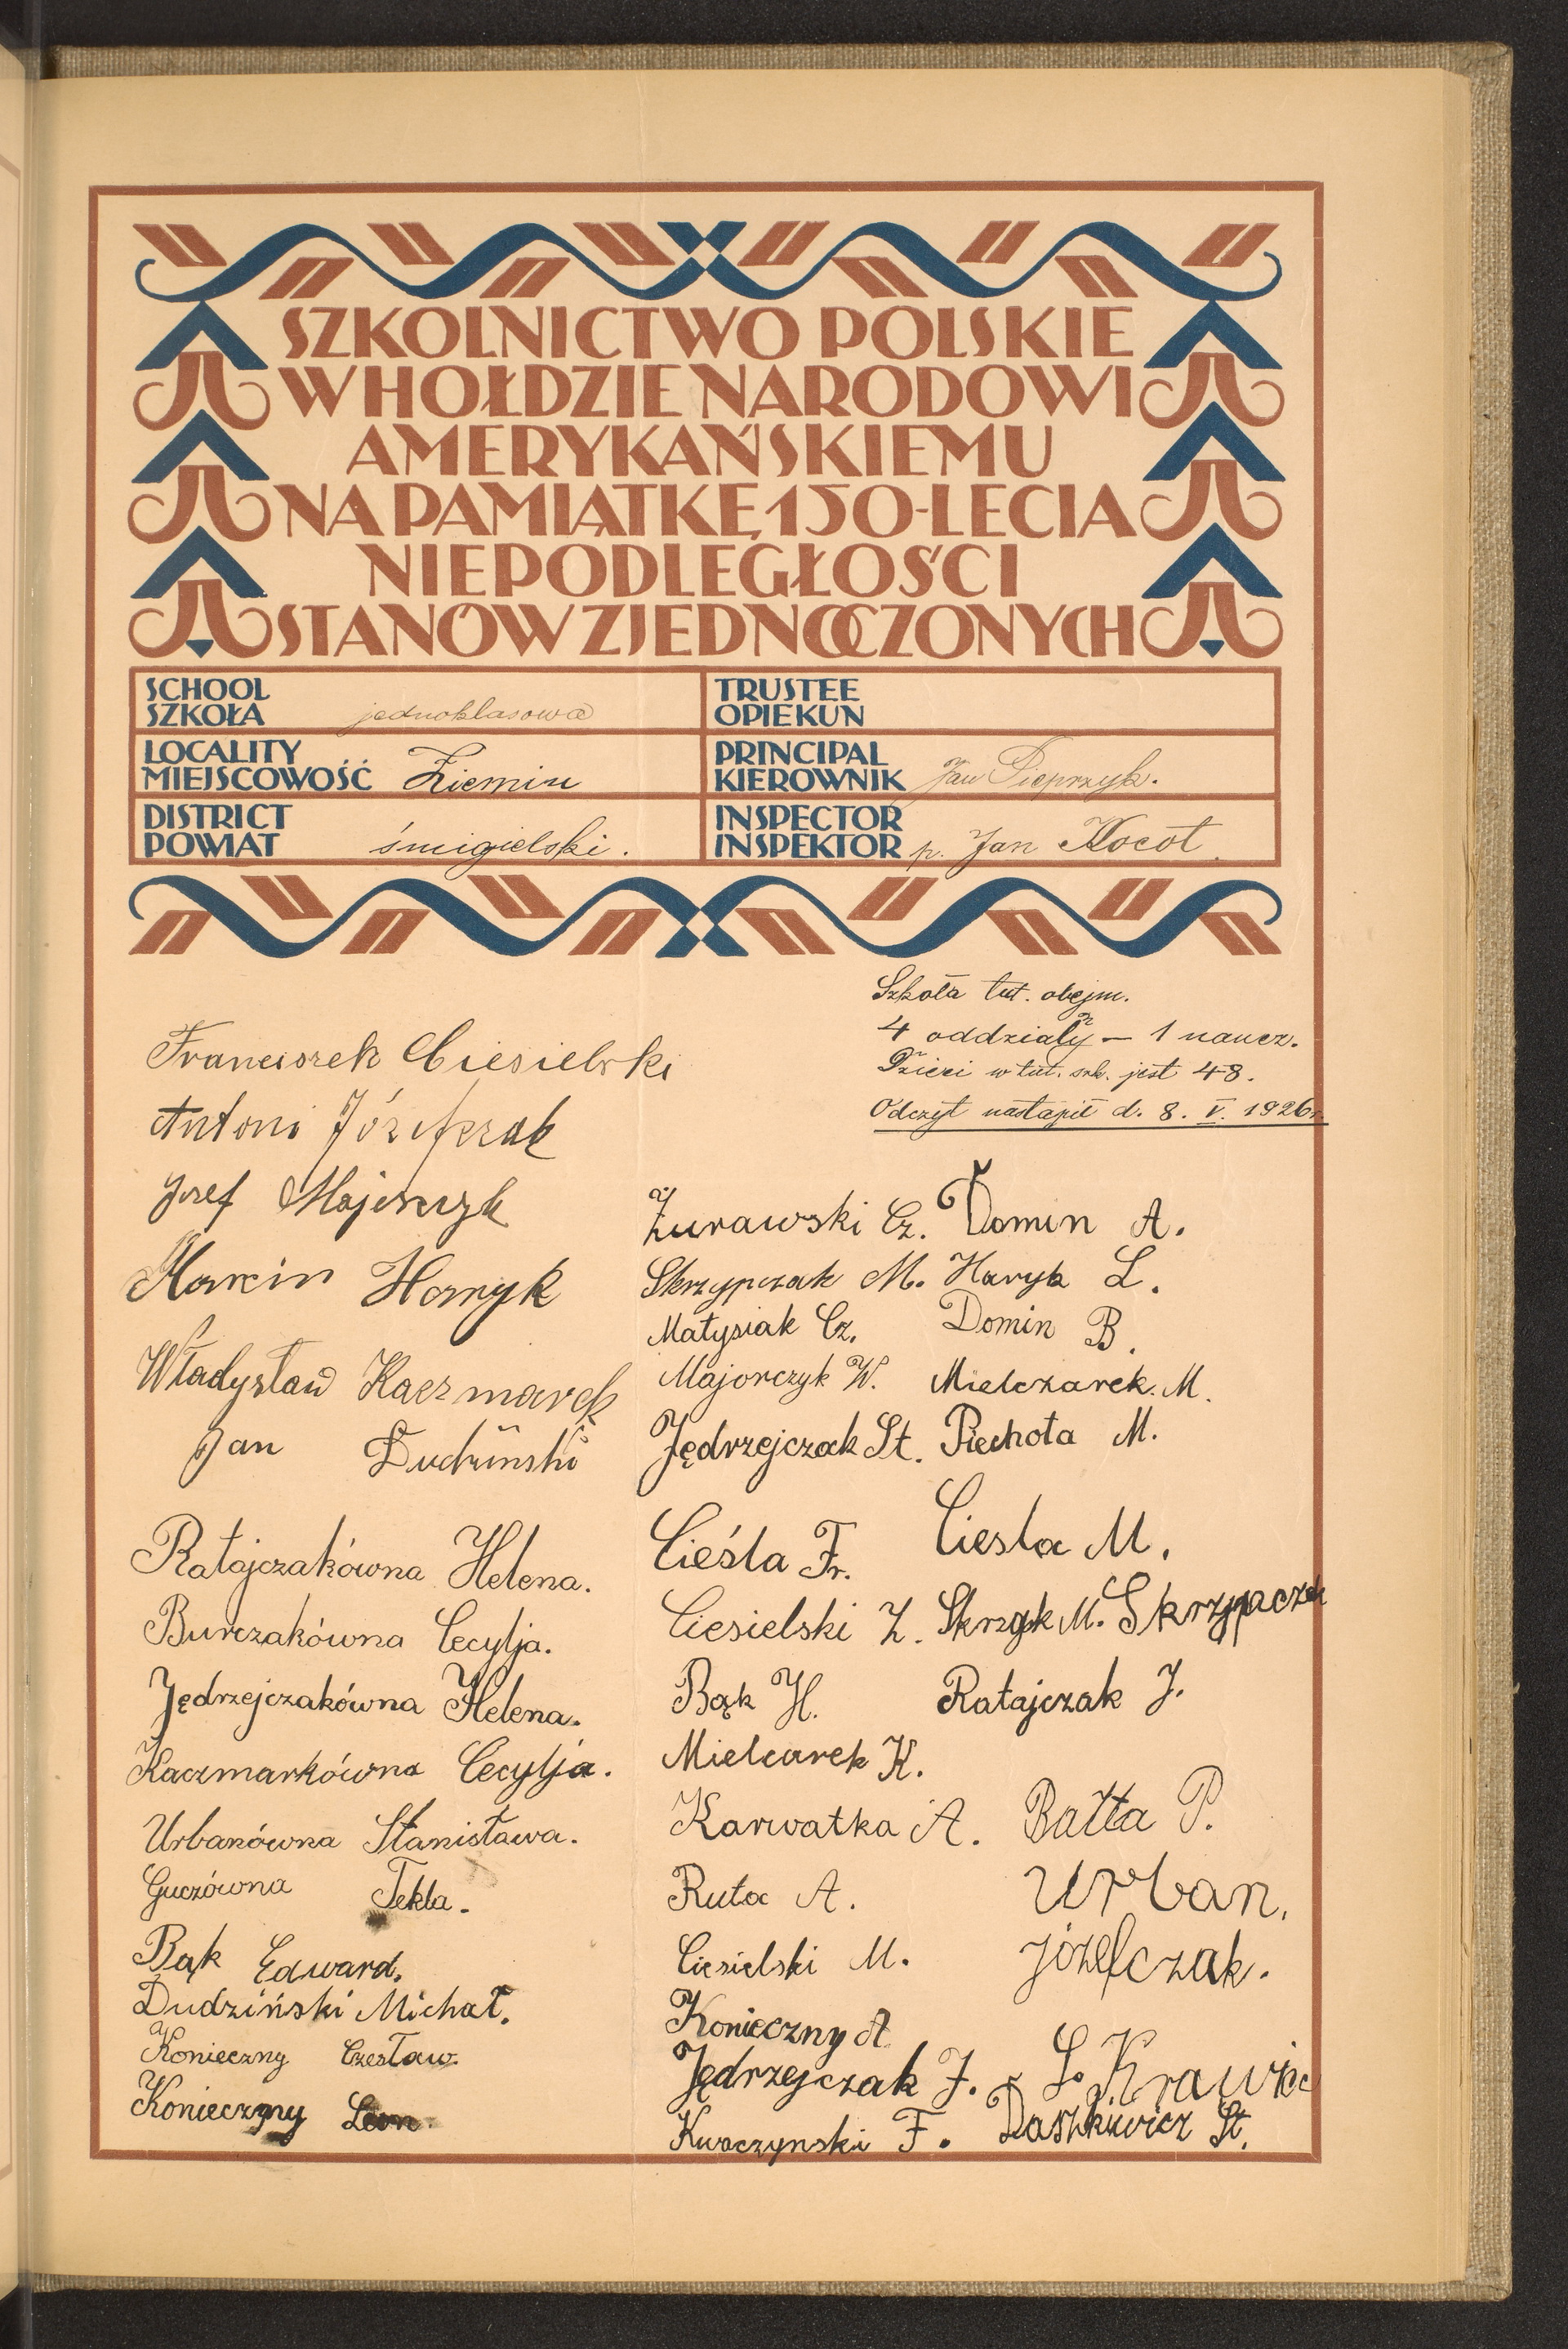 SZKOLNICTWO POLSKIE
W HOŁDZIE NARODOWI
AMERYKAŃSKIEMU
NA PAMIĄTKĘ 150-LECIA
NIEPODLEGŁOŚCI
STANÓW ZJEDNOCZONYCH
SCHOOL
SZKOŁA jednoklasowa
TRUSTEE
OPIEKUN
LOCALITY
MIEJSCOWOŚĆ Ziemin
PRINCIPAL
KIEROWNIK Jan Pieprzyk.
DISTRICT
POWIAT śmigielski.
INSPECTOR
INSPEKTOR p. Jan Kocot.
Szkoła tut. obejm.
4 oddziały — 1 naucz.
Dzieci w tut. szk. jest 48.
Odczyt nastąpił d. 8. V. 1926 r.
Franciszek Ciesielski
Antoni Józefczak
Józef Majorczyk
Marcin Harryk
Władysław Kaczmarek
Jan Duduński
Ratajczakówna Helena.
Burczakówna Cecylja.
Jędrzejczakówna Helena.
Kaczmarkówna Cecylja.
Urbanówna Stanisława.
Guczówna Tekla.
Bąk Edward.
Dudziński Michał.
Konieczny Czesław.
Konieczny Leon.
Żurawski Cz.
Skrzypczak M.
Matysiak Cz.
Majorczyk W.
Jędrzejczak St.
Cieśla Fr.
Ciesielski Z.
Bąk H.
Mielcarek K.
Karwatka A.
Ruta A.
Ciesielski M.
Konieczny A
Jędrzejczak J.
Kwaczynski F.
Domin A.
Haryk L.
Domin B.
Mielczarek. M.
Piechota M.
Ciesla M.
Skrzypk M. Skrzypaczek
Ratajczak J.
Bałta P.
Urban.
Józefczak.
S. Krawiec
Daszkiewicz St.